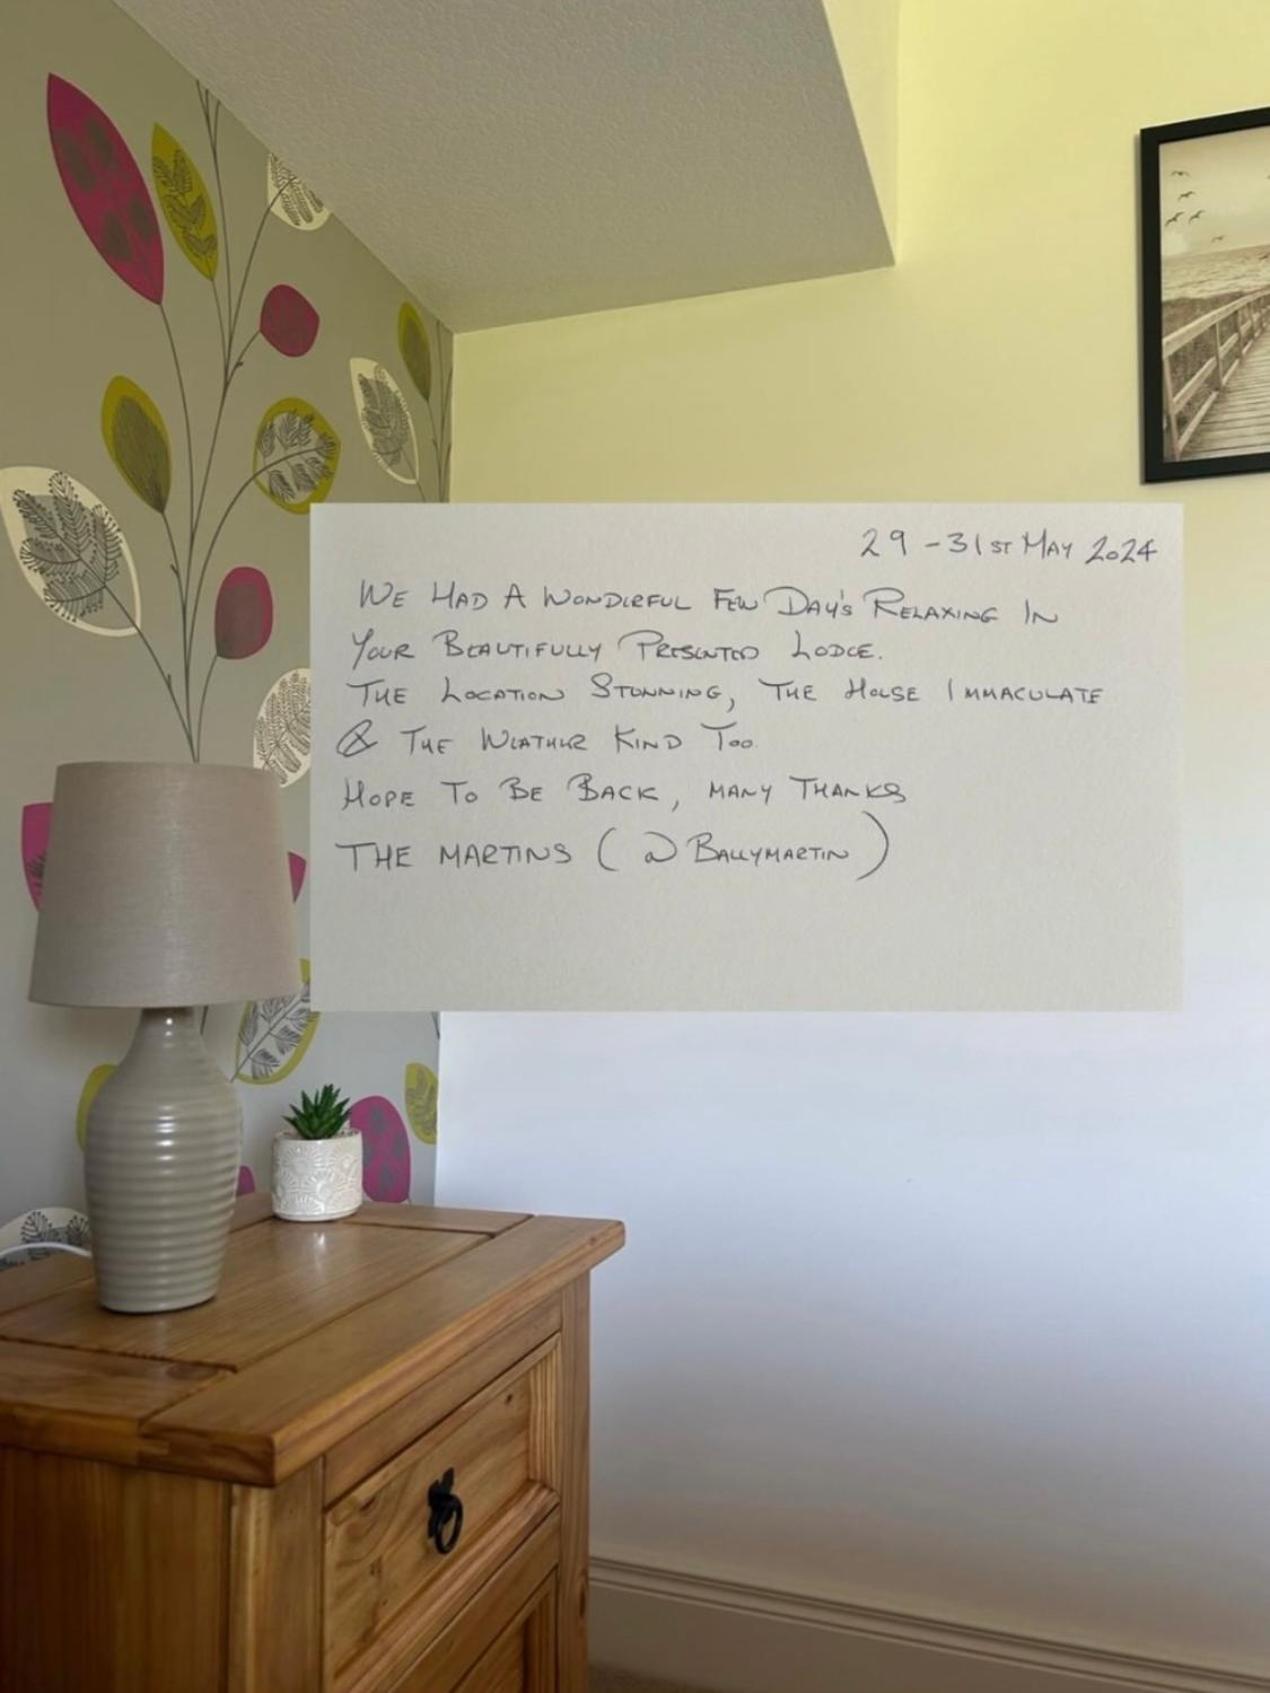 29 - 31ST MAY 2024
WE HAD A WONDERFUL FEW DAY'S RELAXING IN
YOUR BEAUTIFULLY PRESENTED LODGE.
THE LOCATION STUNNING, THE HOUSE IMMACULATE
& THE WEATHER KIND TOO.
HOPE TO BE BACK, MANY THANKS
THE MARTINS (@ BALLYMARTIN)